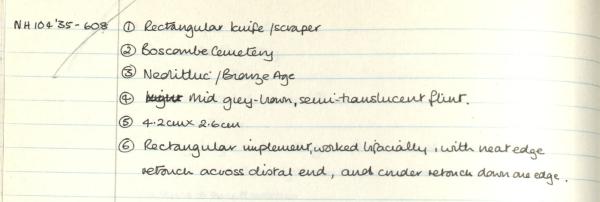 NH104'35-608 ① Rectangular knife/scraper
② Boscombe Cemetery
③ Neolithic/Bronze Age
④ mid grey-brown, semi-translucent flint.
⑤ 4.2cm x 2.6cm
⑥ Rectangular implement, worked bifacially, with neat edge
retouch across distal end, and cruder retouch down one edge.